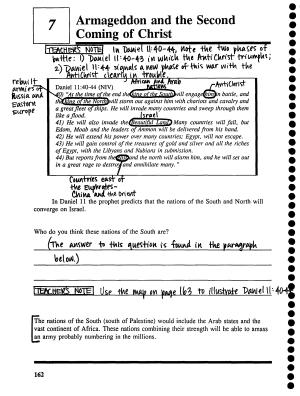 7
Armageddon and the Second
Coming of Christ
TEACHER'S NOTE In Daniel 11:40-44, note the two phases of
battle: 1) Daniel 11:40-43 in which the AntiChrist triumphs;
2) Daniel 11:44 signals a new phase of this war with the
AntiChrist clearly in trouble.
African and Arab
nations
AntiChrist
rebuilt
armies of
Russia and
Eastern
Europe
Daniel 11:40-44 (NIV)
40) "At the time of the end the King of the South will engage him in battle, and
the King of the North will storm out against him with chariots and cavalry and
a great fleet of ships. He will invade many countries and sweep through them
like a flood.
Israel
41) He will also invade the Beautiful Land. Many countries will fall, but
Edom, Moab and the leaders of Ammon will be delivered from his hand.
42) He will extend his power over many countries; Egypt, will not escape.
43) He will gain control of the treasures of gold and silver and all the riches
of Egypt, with the Libyans and Nubians in submission.
44) But reports from the east and the north will alarm him, and he will set out
in a great rage to destroy and annihilate many."
Countries east of
the Euphrates-
China and the Orient
In Daniel 11 the prophet predicts that the nations of the South and North will
converge on Israel.
Who do you think these nations of the South are?
(The answer to this question is found in the paragraph
below.)
TEACHER'S NOTE Use the map on page 163 to illustrate Daniel 11:40-
The nations of the South (south of Palestine) would include the Arab states and the
vast continent of Africa. These nations combining their strength will be able to amass
an army probably numbering in the millions.
162